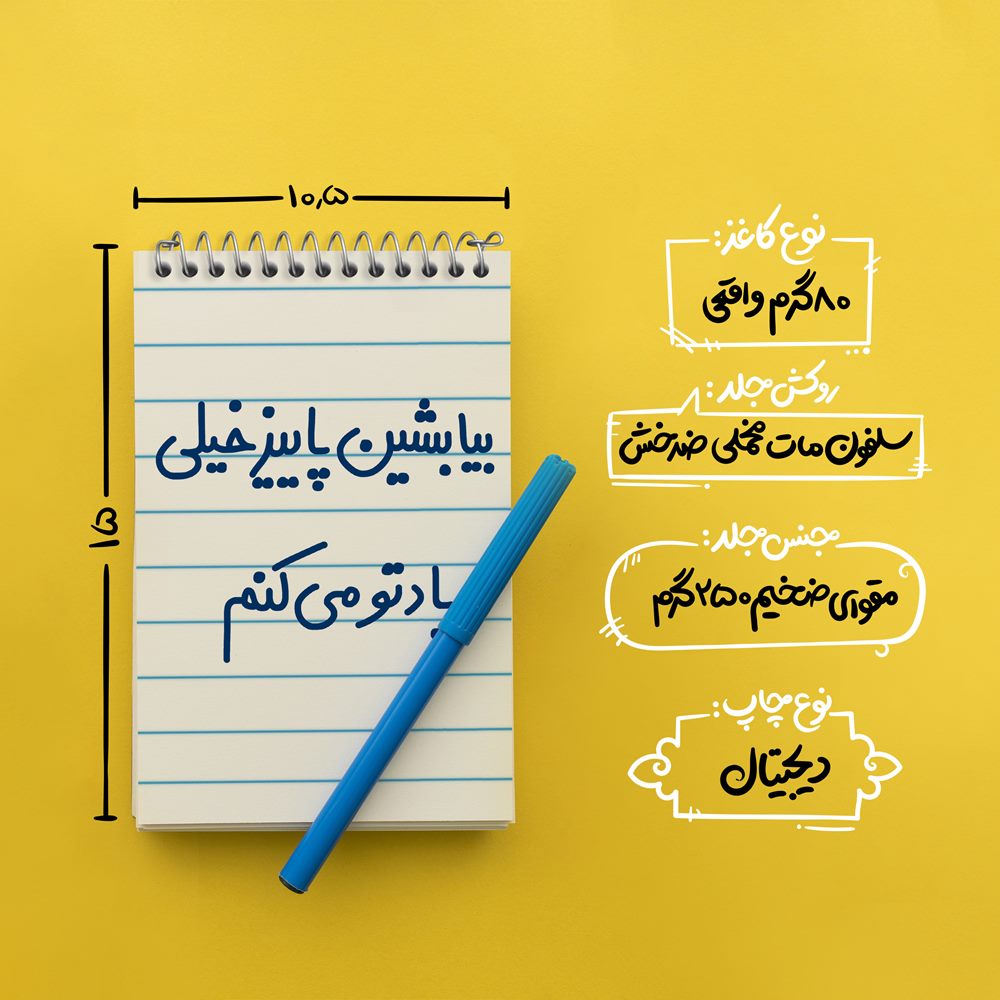 ۱۰,۵
۱۵
بیا بشین پاییز خیلی
یاد تو می کنم
نوع کاغذ:
۸۰ گرم واقعی
روکش جلد:
سلفون مات مخملی ضدخش
جنس جلد:
مقوای ضخیم ۲۵۰ گرم
نوع چاپ:
دیجیتال